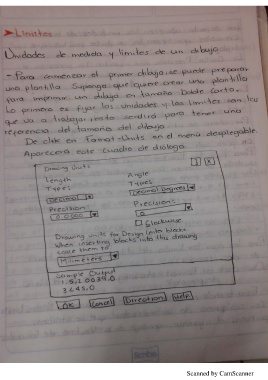 ➤Limites
Unidades de medida y limites de un dibujo
- Para comenzar el primer dibujo se puede preparar
una plantilla. Suponga que quiere crear una plantilla
para imprimir un dibujo en tamaño Doble Carta.
Lo primero es fijar las unidades y los limites con los
que va a trabajar esto servirá para tener una
referencia del tamaño del dibujo
De clik en Format-Units en el menú desplegable.
Aparecerá este cuadro de diálogo
Drawing Units
Length Angle
Type: Type:
Decimal Decimal Degrees
Precision: Precision:
0.0000 0
Clockwise
Drawing units for Design Center blocks
When inserting blocks into this drawing
scale them to
Milimeters
Sample Output
3<45,0
OK Cancel Direction Help
Scanned by CamScanner